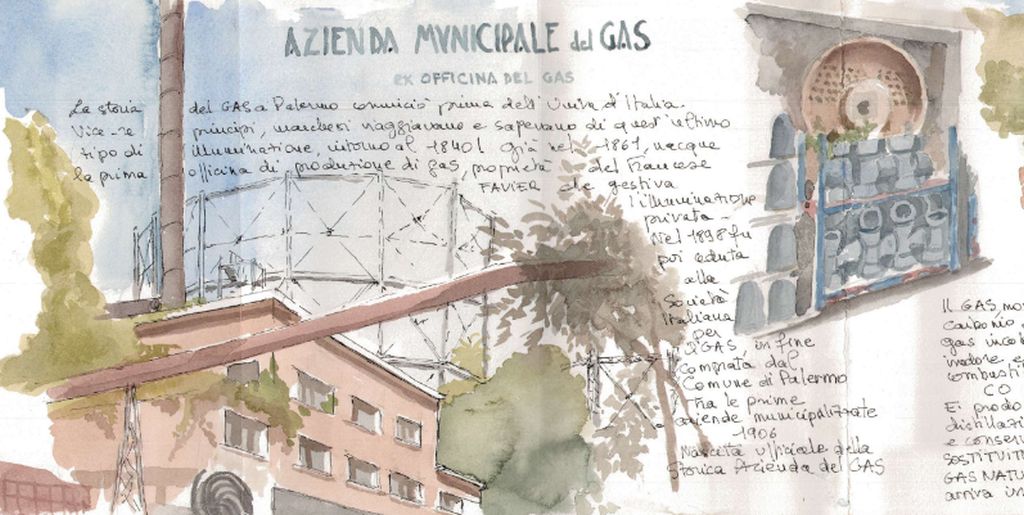 AZIENDA MVNICIPALE del GAS
ex OFFICINA DEL GAS
La storia del GAS a Palermo cominciò prima dell'Unità d'Italia.
Vice-re principi, marchesi viaggiavano e sapevano di quest'ultimo
tipo di illuminazione, intorno al 1840! Già nel 1861, nacque
la prima officina di produzione di gas, proprietà, del francese
FAVIER che gestiva
l'illuminazione
privata-
Nel 1898 fu
poi ceduta
alla
Società
Italiana
per
il GAS, infine
comprata dal
Comune di Palermo
Tra le prime
aziende municipalizzate
-1906
Nascita ufficiale della
Storica Azienda del GAS
Il GAS
carbonio
gas
inodore e
combusti
CO
E'
distillazi
e
SOSTITUIT
GAS NATU
arriva in